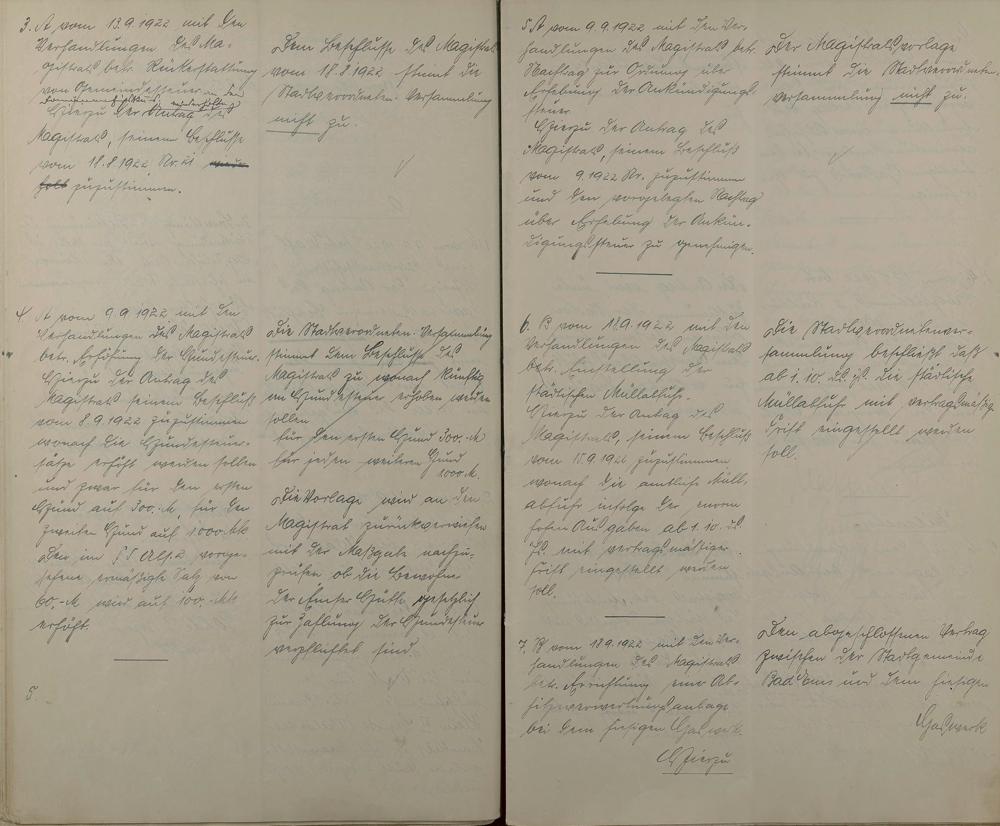 3. A vom 13.9.1922 mit den
Verhandlungen des Ma-
gistrats betr. Rückerstattung
von Gemeindesteuer an den
Hierzu der Antrag des
Magistrats, seinem Beschlusse
vom 18.8.1922 Nr. 21
zuzustimmen.
Dem Beschlusse des Magistrats
vom 18.8.1922 stimmt die
Stadtverordneten-Versammlung
nicht zu.
4. A vom 9.9.1922 mit den
Verhandlungen des Magistrats
betr. Erhöhung der Hundesteuer.
Hierzu der Antrag des
Magistrats seinem Beschluß
vom 8.9.1922 zuzustimmen
wonach die Hundesteuer-
sätze erhöht werden sollen
und zwar für den ersten
Hund auf 300.-M, für den
zweiten Hund auf 1000 Mk
Der im § 5 Abs. 2 vorge-
sehene ermäßigte Satz von
60.-M wird auf 100.-Mk
erhöht.
Die Stadtverordneten-Versammlung
stimmt dem Beschluß des
Magistrats zu wonach künftig
an Hundesteuer erhoben werden
sollen
für den ersten Hund 300.-M
für jeden weiteren Hund
1000 M.
Die Vorlage wird an den
Magistrat zurückverwiesen
mit der Maßgabe nachzu-
prüfen ob die Bewohner
der Emser Hütte gesetzlich
zur Zahlung der Hundesteuer
verpflichtet sind.
5
5. A vom 9.9.1922 mit den Ver-
handlungen des Magistrats betr.
Nachtrag zur Ordnung über
Erhebung der Ankündigungs-
steuer
Hierzu der Antrag des
Magistrats, seinem Beschluß
vom 9.1922 Nr. zuzustimmen
und den vorgelegten Nachtrag
über Erhebung der Ankün-
digungssteuer zu genehmigen.
Der Magistratsvorlage
stimmt die Stadtverordneten-
versammlung nicht zu.
6. B vom 18.9.1922 mit den
Verhandlungen des Magistrats
betr. Einstellung der
städtischen Müllabfuhr.
Hierzu der Antrag des
Magistrats, seinem Beschluß
vom 15.9.1922 zuzustimmen
wonach die amtliche Müll-
abfuhr infolge der enorm
hohen Ausgaben ab 1.10. ds.
Js. mit vertragsmäßiger
Frist eingestellt werden
soll.
Die Stadtverordnetenver-
sammlung beschließt daß
ab 1.10. ds. Js. die städtische
Müllabfuhr mit vertragsmäßiger
Frist eingestellt werden
soll.
7. B vom 18.9.1922 mit den Ver-
handlungen des Magistrats
betr. Errichtung einer Ab-
hitzeverwertungsanlage
bei dem hiesigen Gaswerk.
Hierzu
Den abgeschlossenen Vertrag
zwischen der Stadtgemeinde
Bad Ems und dem hiesigen
Gaswerk